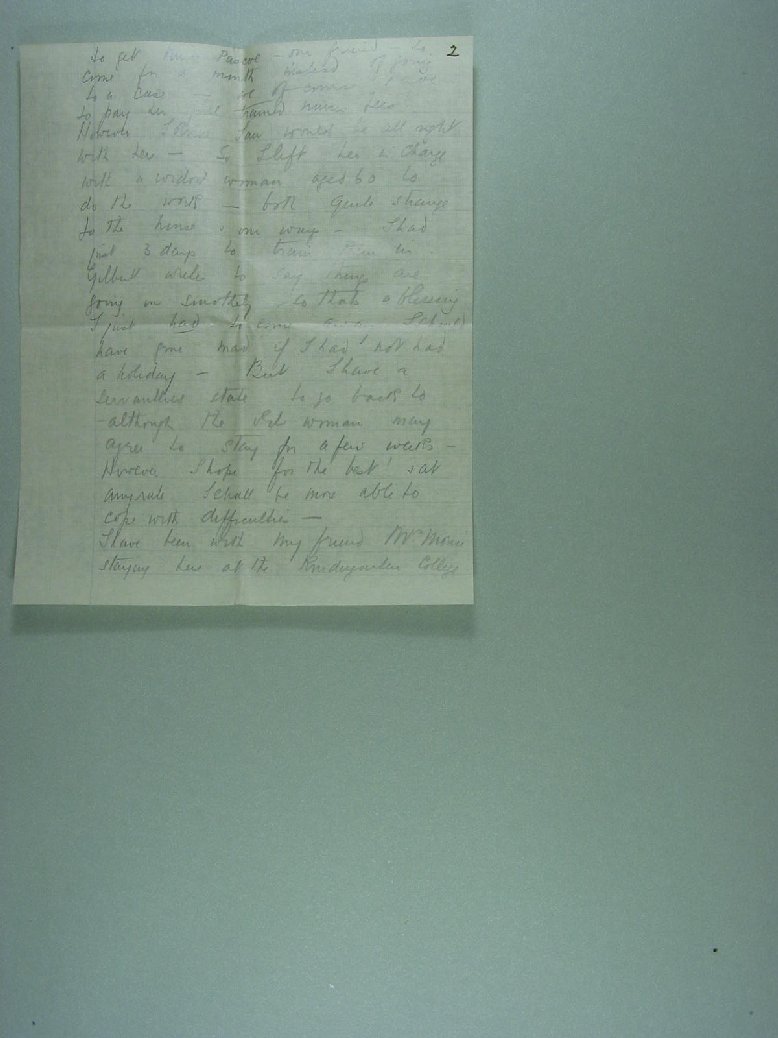 2
to get Nurse Pascoe - our friend - to
come for a month instead of going
to a case - we of course
to pay her full trained nurses fees
However I knew Ian would be all right
with her - So I left her in charge
with a widow woman aged 60 to
do the work - both quite strange
to the house & our ways - I had
just 3 days to train them in.
Gilbert writes to say things are
going on smoothly so thats a blessing
I just had to come away I should
have gone mad if I had not had
a holiday - But I have a
servantless state to go back to
-although the old woman may
agree to stay for a few weeks -
However I hope for the best! & at
anyrate I shall be more able to
cope with difficulties -
I have been with my friend
staying here at the College